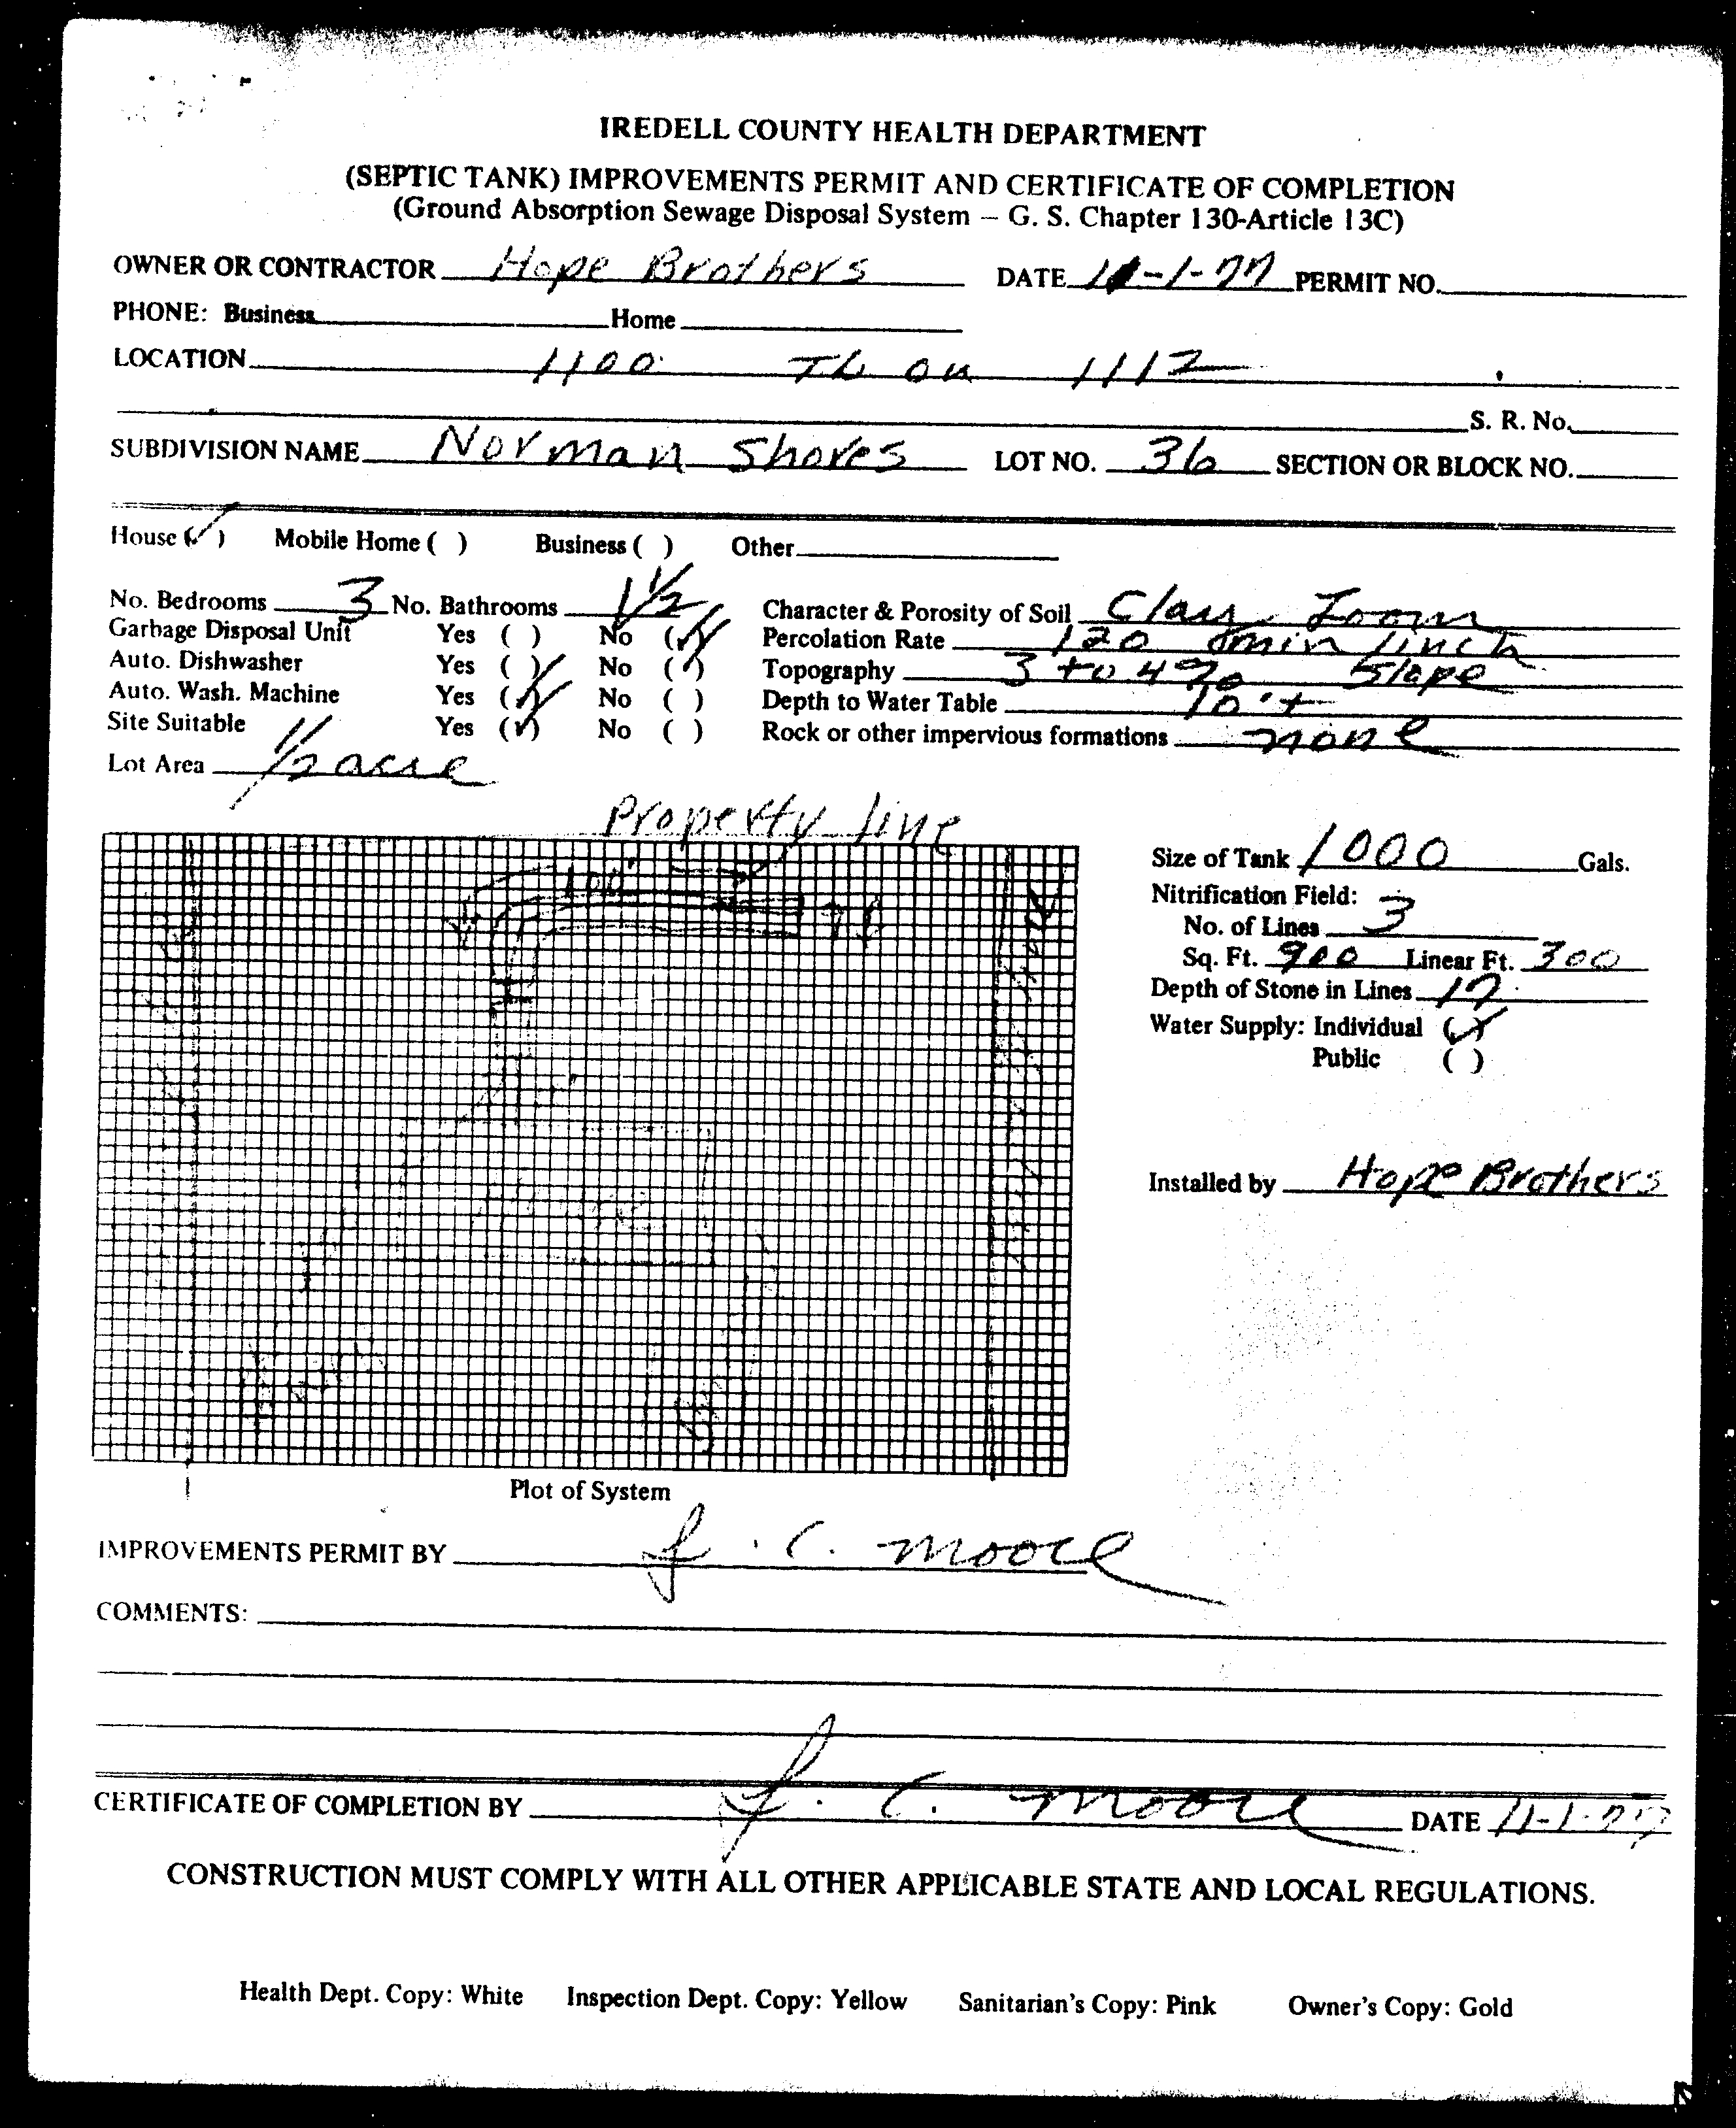 IREDELL COUNTY HEALTH DEPARTMENT
(SEPTIC TANK) IMPROVEMENTS PERMIT AND CERTIFICATE OF COMPLETION
(Ground Absorption Sewage Disposal System – G. S. Chapter 130-Article 13C)
OWNER OR CONTRACTOR Hope Brothers DATE 11-1-77 PERMIT NO.
PHONE: Business Home
LOCATION 1100 TL on 1112
S. R. No.
SUBDIVISION NAME Norman Shores LOT NO. 36 SECTION OR BLOCK NO.
House (✓) Mobile Home ( ) Business ( ) Other
No. Bedrooms 3 No. Bathrooms 1 1/2 Character & Porosity of Soil Clay Loom
Garbage Disposal Unit Yes ( ) No (✓) Percolation Rate 120 min / inch
Auto. Dishwasher Yes ( ) No (✓) Topography 3 to 4% Slope
Auto. Wash. Machine Yes (✓) No ( ) Depth to Water Table 10'+
Site Suitable Yes (✓) No ( ) Rock or other impervious formations none
Lot Area 1/2 acre
Property line
100'
Size of Tank 1000 Gals.
Nitrification Field:
No. of Lines 3
Sq. Ft. 900 Linear Ft. 300
Depth of Stone in Lines
Water Supply: Individual (✓)
Public ( )
Installed by Hope Brothers
Plot of System
IMPROVEMENTS PERMIT BY J. C. Moore
COMMENTS:
CERTIFICATE OF COMPLETION BY J. C. Moore DATE 11-1-77
CONSTRUCTION MUST COMPLY WITH ALL OTHER APPLICABLE STATE AND LOCAL REGULATIONS.
Health Dept. Copy: White Inspection Dept. Copy: Yellow Sanitarian's Copy: Pink Owner's Copy: Gold